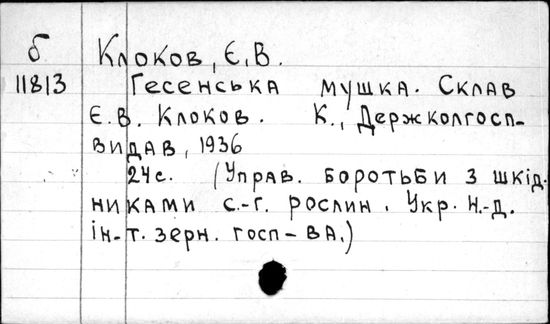 б Клоков, Є.В.
11813 Гесенська мушка. Склав
Є.В. Клоков. К., Держколгосп-
видав, 1936
24с. (Управ. боротьби з шкід-
никами с.-г. рослин. Укр. н.-д.
ін-т. зерн. госп-ва.)